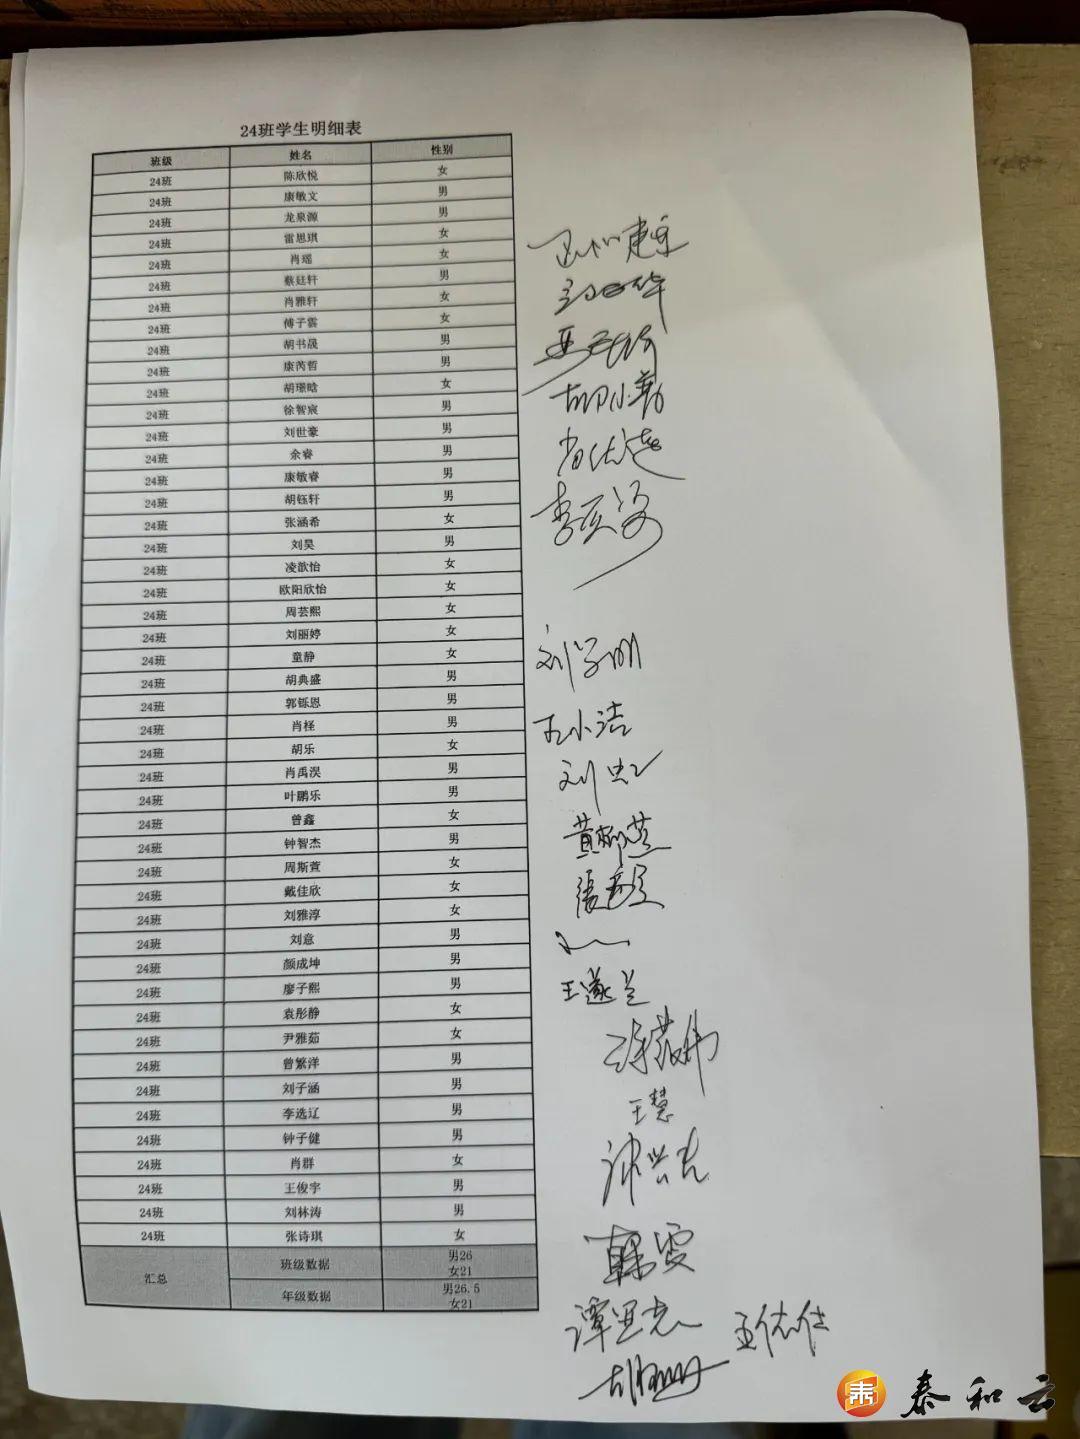 24班学生明细表
班级 姓名 性别
24班 陈欣悦 女
24班 康敏文 男
24班 龙泉源 男
24班 雷思琪 女
24班 肖瑶 女
24班 蔡廷轩 男
24班 肖雅轩 女
24班 傅子雲 女
24班 胡书晟 男
24班 康芮哲 男
24班 胡璟晗 女
24班 徐智宸 男
24班 刘世豪 男
24班 余睿 男
24班 康敏睿 男
24班 胡钰轩 男
24班 张涵希 女
24班 刘昊 男
24班 凌歆怡 女
24班 欧阳欣怡 女
24班 周芸熙 女
24班 刘丽婷 女
24班 童静 女
24班 胡典盛 男
24班 郭铄恩 男
24班 肖柽 男
24班 胡乐 女
24班 肖禹淏 男
24班 叶鹏乐 男
24班 曾鑫 女
24班 钟智杰 男
24班 周斯萱 女
24班 戴佳欣 女
24班 刘雅淳 女
24班 刘意 男
24班 颜成坤 男
24班 廖子熙 男
24班 袁彤静 女
24班 尹雅茹 女
24班 曾繁洋 男
24班 刘子涵 男
24班 李选辽 男
24班 钟子健 男
24班 肖群 女
24班 王俊宇 男
24班 刘林涛 男
24班 张诗琪 女
汇总 班级数据 男26
女21
年级数据 男26.5
女21
胡小勤
刘学明
王小洁
刘忠
王遂兰
王慧
韩雯
泰和云